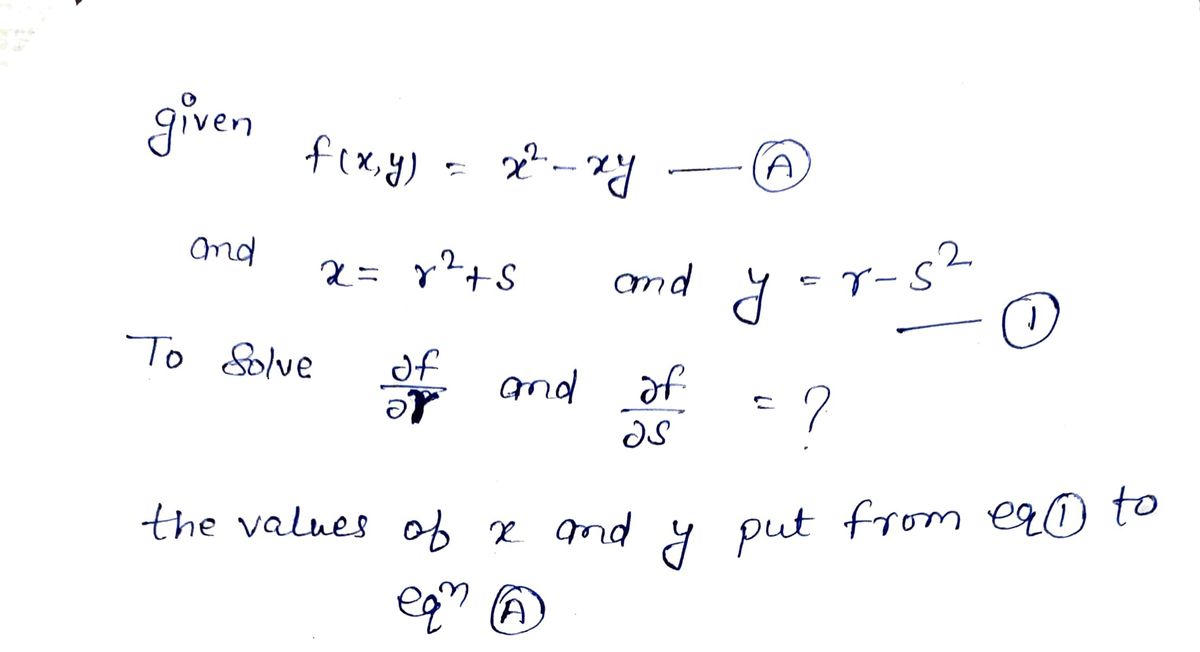 given
f(x,y) = x² - xy — Ⓐ
and x = r² + s and y = r - s² — ①
To Solve ∂f/∂r and ∂f/∂s = ?
the values of x and y put from eq① to
eqⁿ Ⓐ